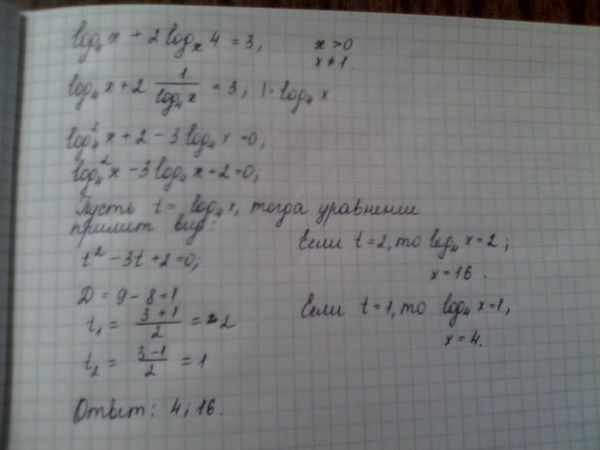 log₄x + 2 logₓ 4 = 3,
x > 0
x ≠ 1.
log₄x + 2 1/log₄x = 3; | · log₄x
log₄²x + 2 − 3 log₄x = 0;
log₄²x − 3 log₄x + 2 = 0;
Пусть t = log₄x, тогда уравнение
примет вид:
t² − 3t + 2 = 0;
D = 9 − 8 = 1,
t₁ = (3 + 1)/2 = 2
t₂ = (3 − 1)/2 = 1
Если t = 2, то log₄x = 2;
x = 16.
Если t = 1, то log₄x = 1,
x = 4.
Ответ: 4; 16.